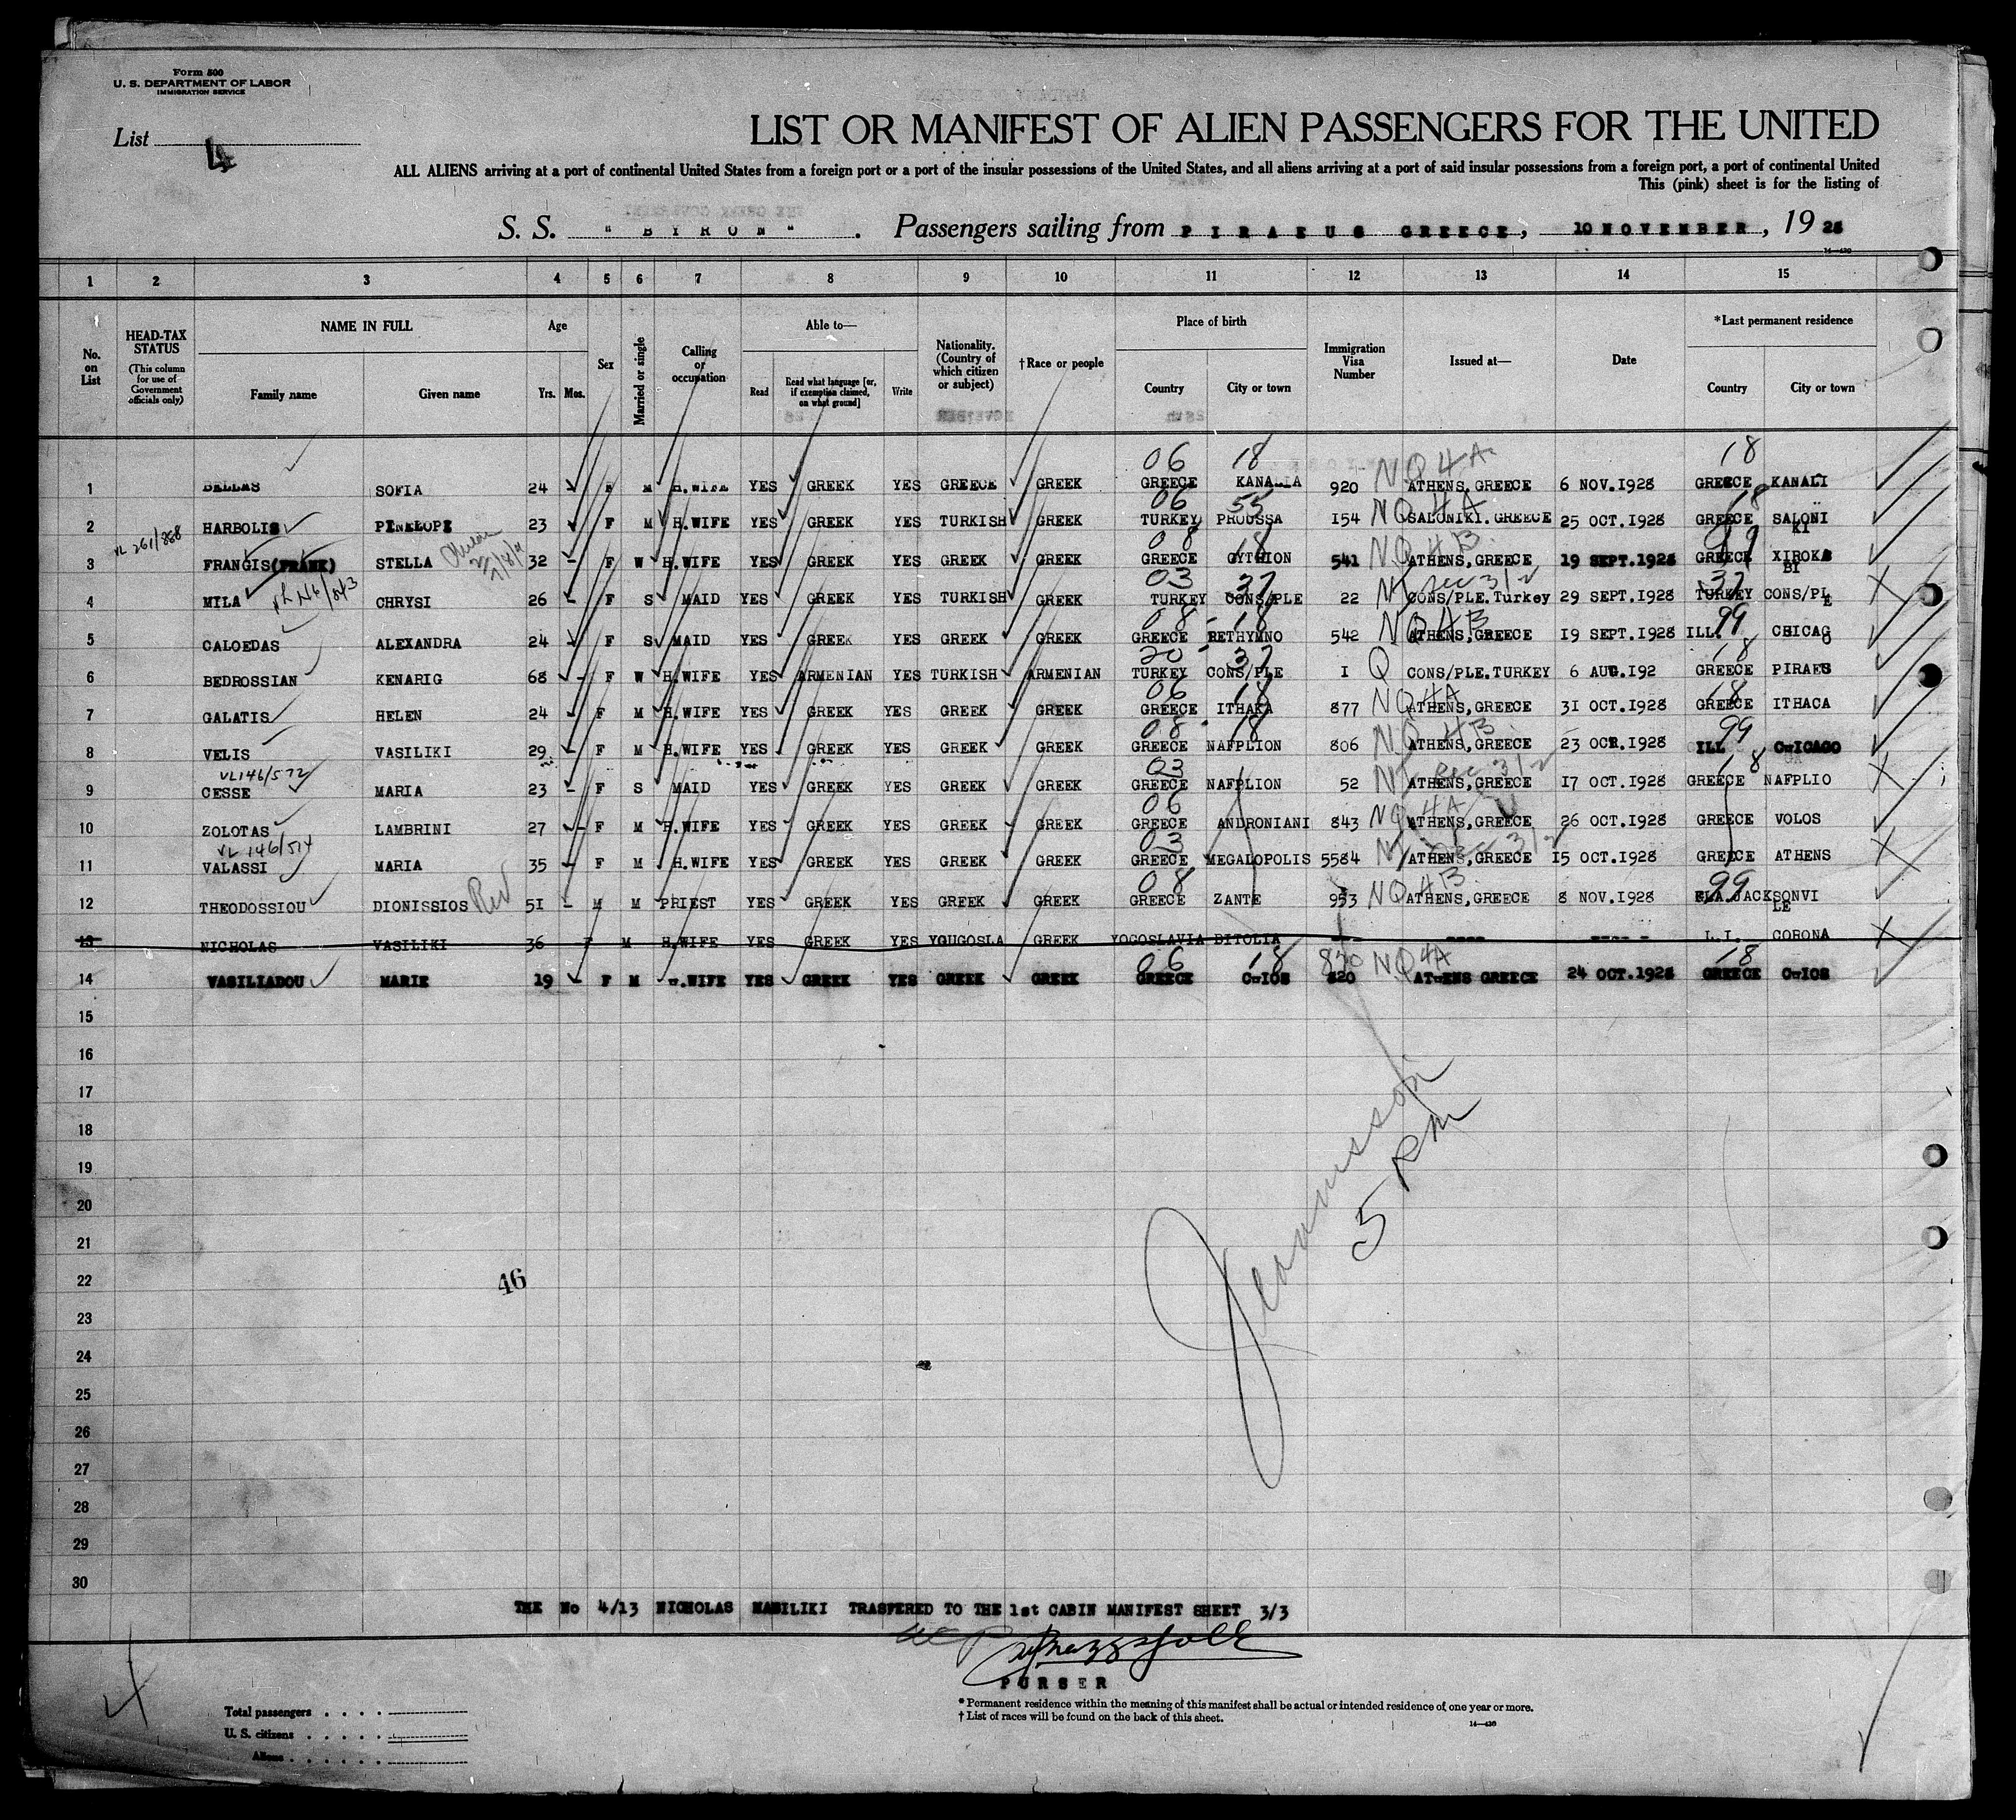 Form 500
U. S. DEPARTMENT OF LABOR
IMMIGRATION SERVICE
List 4
LIST OR MANIFEST OF ALIEN PASSENGERS FOR THE UNITED
ALL ALIENS arriving at a port of continental United States from a foreign port or a port of the insular possessions of the United States, and all aliens arriving at a port of said insular possessions from a foreign port, a port of continental United
This (pink) sheet is for the listing of
S. S. "BYRON". Passengers sailing from PIRAEUS GREECE, 10 NOVEMBER, 1928
1 2 3 4 5 6 7 8 9 10 11 12 13 14 15
No. on List
HEAD-TAX STATUS (This column for use of Government officials only)
NAME IN FULL Family name Given name
Age Yrs. Mos.
Sex
Married or single
Calling or occupation
Able to— Read Read what language [or, if exemption claimed, on what ground] Write
Nationality. (Country of which citizen or subject)
†Race or people
Place of birth Country City or town
Immigration Visa Number
Issued at—
Date
*Last permanent residence Country City or town
06 18 NQ 4A 18
1 DELLAS SOFIA 24 F M H.WIFE YES GREEK YES GREECE GREEK GREECE KANALIA 920 ATHENS, GREECE 6 NOV.1928 GREECE KANALI
06 55 NQ 4A 18
2 HARBOLIS PENELOPE 23 F M H.WIFE YES GREEK YES TURKISH GREEK TURKEY PROUSSA 154 SALONIKI.GREECE 25 OCT.1928 GREECE SALONIKI
VL 261/888 08 18 NQ 4B 99
3 FRANGIS(FRANK) STELLA 32 - F W H.WIFE YES GREEK YES GREEK GREEK GREECE GYTHION 541 ATHENS, GREECE 19 SEPT.1928 GREECE XIROKABI
03 37 N sec 3/2 37
4 MILA CHRYSI 26 - F S MAID YES GREEK YES TURKISH GREEK TURKEY CONS/PLE 22 CONS/PLE.Turkey 29 SEPT.1928 TURKEY CONS/PLE
08 - 18 NQ 4B 99
5 CALOEDAS ALEXANDRA 24 F S MAID YES GREEK YES GREEK GREEK GREECE RETHYMNO 542 ATHENS, GREECE 19 SEPT.1928 ILL. CHICAGO
20 - 37 Q 18
6 BEDROSSIAN KENARIG 68 - F W H.WIFE YES ARMENIAN YES TURKISH ARMENIAN TURKEY CONS/PLE I CONS/PLE.TURKEY 6 AUG.192 GREECE PIRAES
06 18 NQ 4A 18
7 GALATIS HELEN 24 - F M H.WIFE YES GREEK YES GREEK GREEK GREECE ITHAKA 877 ATHENS, GREECE 31 OCT.1928 GREECE ITHACA
08 - 18 NQ 4B 99
8 VELIS VASILIKI 29 F M H.WIFE YES GREEK YES GREEK GREEK GREECE NAFPLION 806 ATHENS, GREECE 23 OCT.1928 ILL CHICAGO
VL146/572 03 N sec 3/2 18
9 CESSE MARIA 23 - F S MAID YES GREEK YES GREEK GREEK GREECE NAFPLION 52 ATHENS, GREECE 17 OCT.1928 GREECE NAFPLIO
06 NQ 4A
10 ZOLOTAS LAMBRINI 27 - F M H.WIFE YES GREEK YES GREEK GREEK GREECE ANDRONIANI 843 ATHENS, GREECE 26 OCT.1928 GREECE VOLOS
VL 146/514 03 N sec 3/2
11 VALASSI MARIA 35 - F M H.WIFE YES GREEK YES GREEK GREEK GREECE MEGALOPOLIS 5584 ATHENS, GREECE 15 OCT.1928 GREECE ATHENS
Rev 08 NQ 4B 99
12 THEODOSSIOU DIONISSIOS 51 - M M PRIEST YES GREEK YES GREEK GREEK GREECE ZANTE 953 ATHENS, GREECE 8 NOV.1928 FLA.JACKSONVILE
13 NICHOLAS VASILIKI 36 F M H.WIFE YES GREEK YES YOUGOSLA GREEK YOGOSLAVIA BITOLIA ---- ---- ---- - L.I. CORONA
06 18 820 NQ 4A 18
14 VASILIADOU MARIE 19 - F M H.WIFE YES GREEK YES GREEK GREEK GREECE CHIOS 820 ATHENS GREECE 24 OCT.1928 GREECE CHIOS
15
16
17
5 PM
18
19
20
21
22
46
23
24
25
26
27
28
29
30
THE No 4/13 NICHOLAS VASILIKI TRASFERED TO THE 1st CABIN MANIFEST SHEET 3/3
PURSER
* Permanent residence within the meaning of this manifest shall be actual or intended residence of one year or more.
† List of races will be found on the back of this sheet.
14—430
Total passengers
U. S. citizens
Aliens